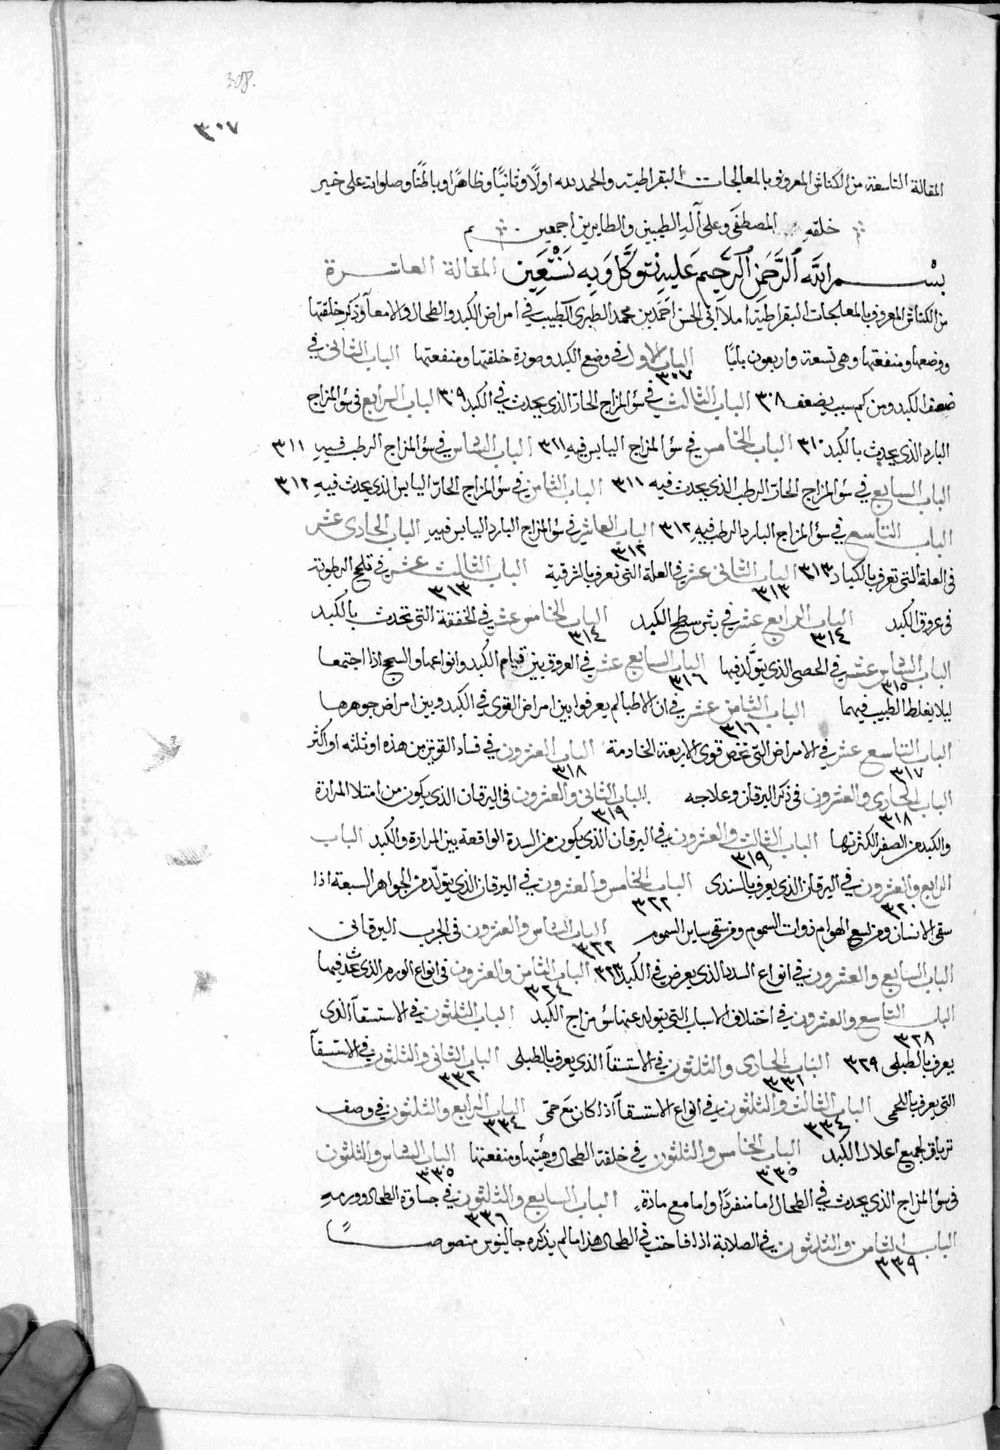 308.
٣٠٧
المقالة التاسعة من الكناش المعروف بالمعالجات البقراطية والحمد لله اولًا وثانيًا وظاهرًا وباطنًا وصلواته على خير
خلقه المصطفى وعلى آله الطيبين والطاهرين اجمعين
بسم الله الرحمن الرحيم عليه نتوكل وبه نستعين المقالة العاشرة
من الكناش المعروف بالمعالجات البقراطية املا ابى الحسن احمد بن محمد الطبرى الطبيب فى امراض الكبد والطحال والامعا وذكر خلقتها
ووضعها ومنفعتها وهى تسعة واربعون بابًا الباب الاول فى وضع الكبد وصورة خلقتها ومنفعتها ٣٠٧ الباب الثانى فى
ضعف الكبد ومن كم سبب يضعف ٣٠٨ الباب الثالث فى سؤ المزاج الحار الذى يحدث فى الكبد ٣٠٩ الباب الرابع فى سؤ المزاج
البارد الذى يحدث بالكبد ٣١٠ الباب الخامس فى سؤ المزاج اليابس فيه ٣١١ الباب السادس فى سؤ المزاج الرطب فيه ٣١١
الباب السابع فى سؤ المزاج الحار الرطب الذى يحدث فيه ٣١١ الباب الثامن فى سؤ المزاج الحار اليابس الذى يحدث فيه ٣١٢
الباب التاسع فى سؤ المزاج البارد الرطب فيه ٣١٢ الباب العاشر فى سؤ المزاج البارد اليابس فيه ٣١٢ الباب الحادى عشر
فى العلة التى تعرف بالكباد ٣١٣ الباب الثانى عشر فى العلة التى تعرف بالشرقية ٣١٣ الباب الثالث عشر فى تلحج الرطوبة ٣١٣
فى عروق الكبد الباب الرابع عشر فى بثر سطح الكبد ٣١٤ الباب الخامس عشر فى الخفقة التى تحدث بالكبد ٣١٤
الباب السادس عشر فى الحصى الذى يتولد فيها ٣١٥ الباب السابع عشر فى الفروق بين قيام الكبد وانواعها والسحج اذا اجتمعا ٣١٦
ليلا يغلط الطبيب فيهما الباب الثامن عشر فى ان الاطبا لم يعرفوا بين امراض القوى فى الكبد وبين امراض جوهرها ٣١٦
الباب التاسع عشر فى الامراض التى تخص قوى الاربعة الخادمة ٣١٧ الباب العشرون فى فساد القوتين من هذه او ثلثه او اكثر ٣١٨
الباب الحادى والعشرون فى ذكر اليرقان وعلاجه ٣١٨ الباب الثانى والعشرون فى اليرقان الذى يكون من امتلا المرارة ٣١٩
والكبد من الصفرا لكثرتها الباب الثالث والعشرون فى اليرقان الذى يكون من السدة الواقعة بين المرارة والكبد ٣١٩ الباب
الرابع والعشرون فى اليرقان الذى يعرف بالسندى ٣٢٠ الباب الخامس والعشرون فى اليرقان الذى يتولد من الجواهر السبعة اذا ٣٢٢
سقى الانسان ومن لسع الهوام ذوات السموم ومن سقى ساير السموم الباب السادس والعشرون فى الجرب اليرقانى ٣٢٢
الباب السابع والعشرون فى انواع السدد الذى يعرض فى الكبد ٣٢٣ الباب الثامن والعشرون فى انواع الورم الذى يحدث فيها ٣٢٤
الباب التاسع والعشرون فى اختلاف الاسباب التى يتولد عنها سؤ مزاج الكبد ٣٢٨ الباب الثلثون فى الاستسقآ الذى
يعرف بالطبلى ٣٢٩ الباب الحادى والثلثون فى الاستسقآ الذى يعرف بالطبلى ٣٣١ الباب الثانى والثلثون فى الاستسقآ ٣٣٢
التى يعرف باللحمى الباب الثالث والثلثون فى انواع الاستسقآ اذا كان مع حمى ٣٣٤ الباب الرابع والثلثون فى وصف ٣٣٤
ترياق لجميع اعلال الكبد الباب الخامس والثلثون فى خلقة الطحال وهيئتها ومنفعتها ٣٣٥ الباب السادس والثلثون ٣٣٥
فى سؤ المزاج الذى يحدث فى الطحال اما منفردًا واما مع مادة الباب السابع والثلثون فى جساوة الطحال وورمه ٣٣٦
الباب الثامن والثلثون فى الصلابة اذا فاحت فى الطحال هذا ما لم يذكره جالينوس منصوصًا ٣٣٩